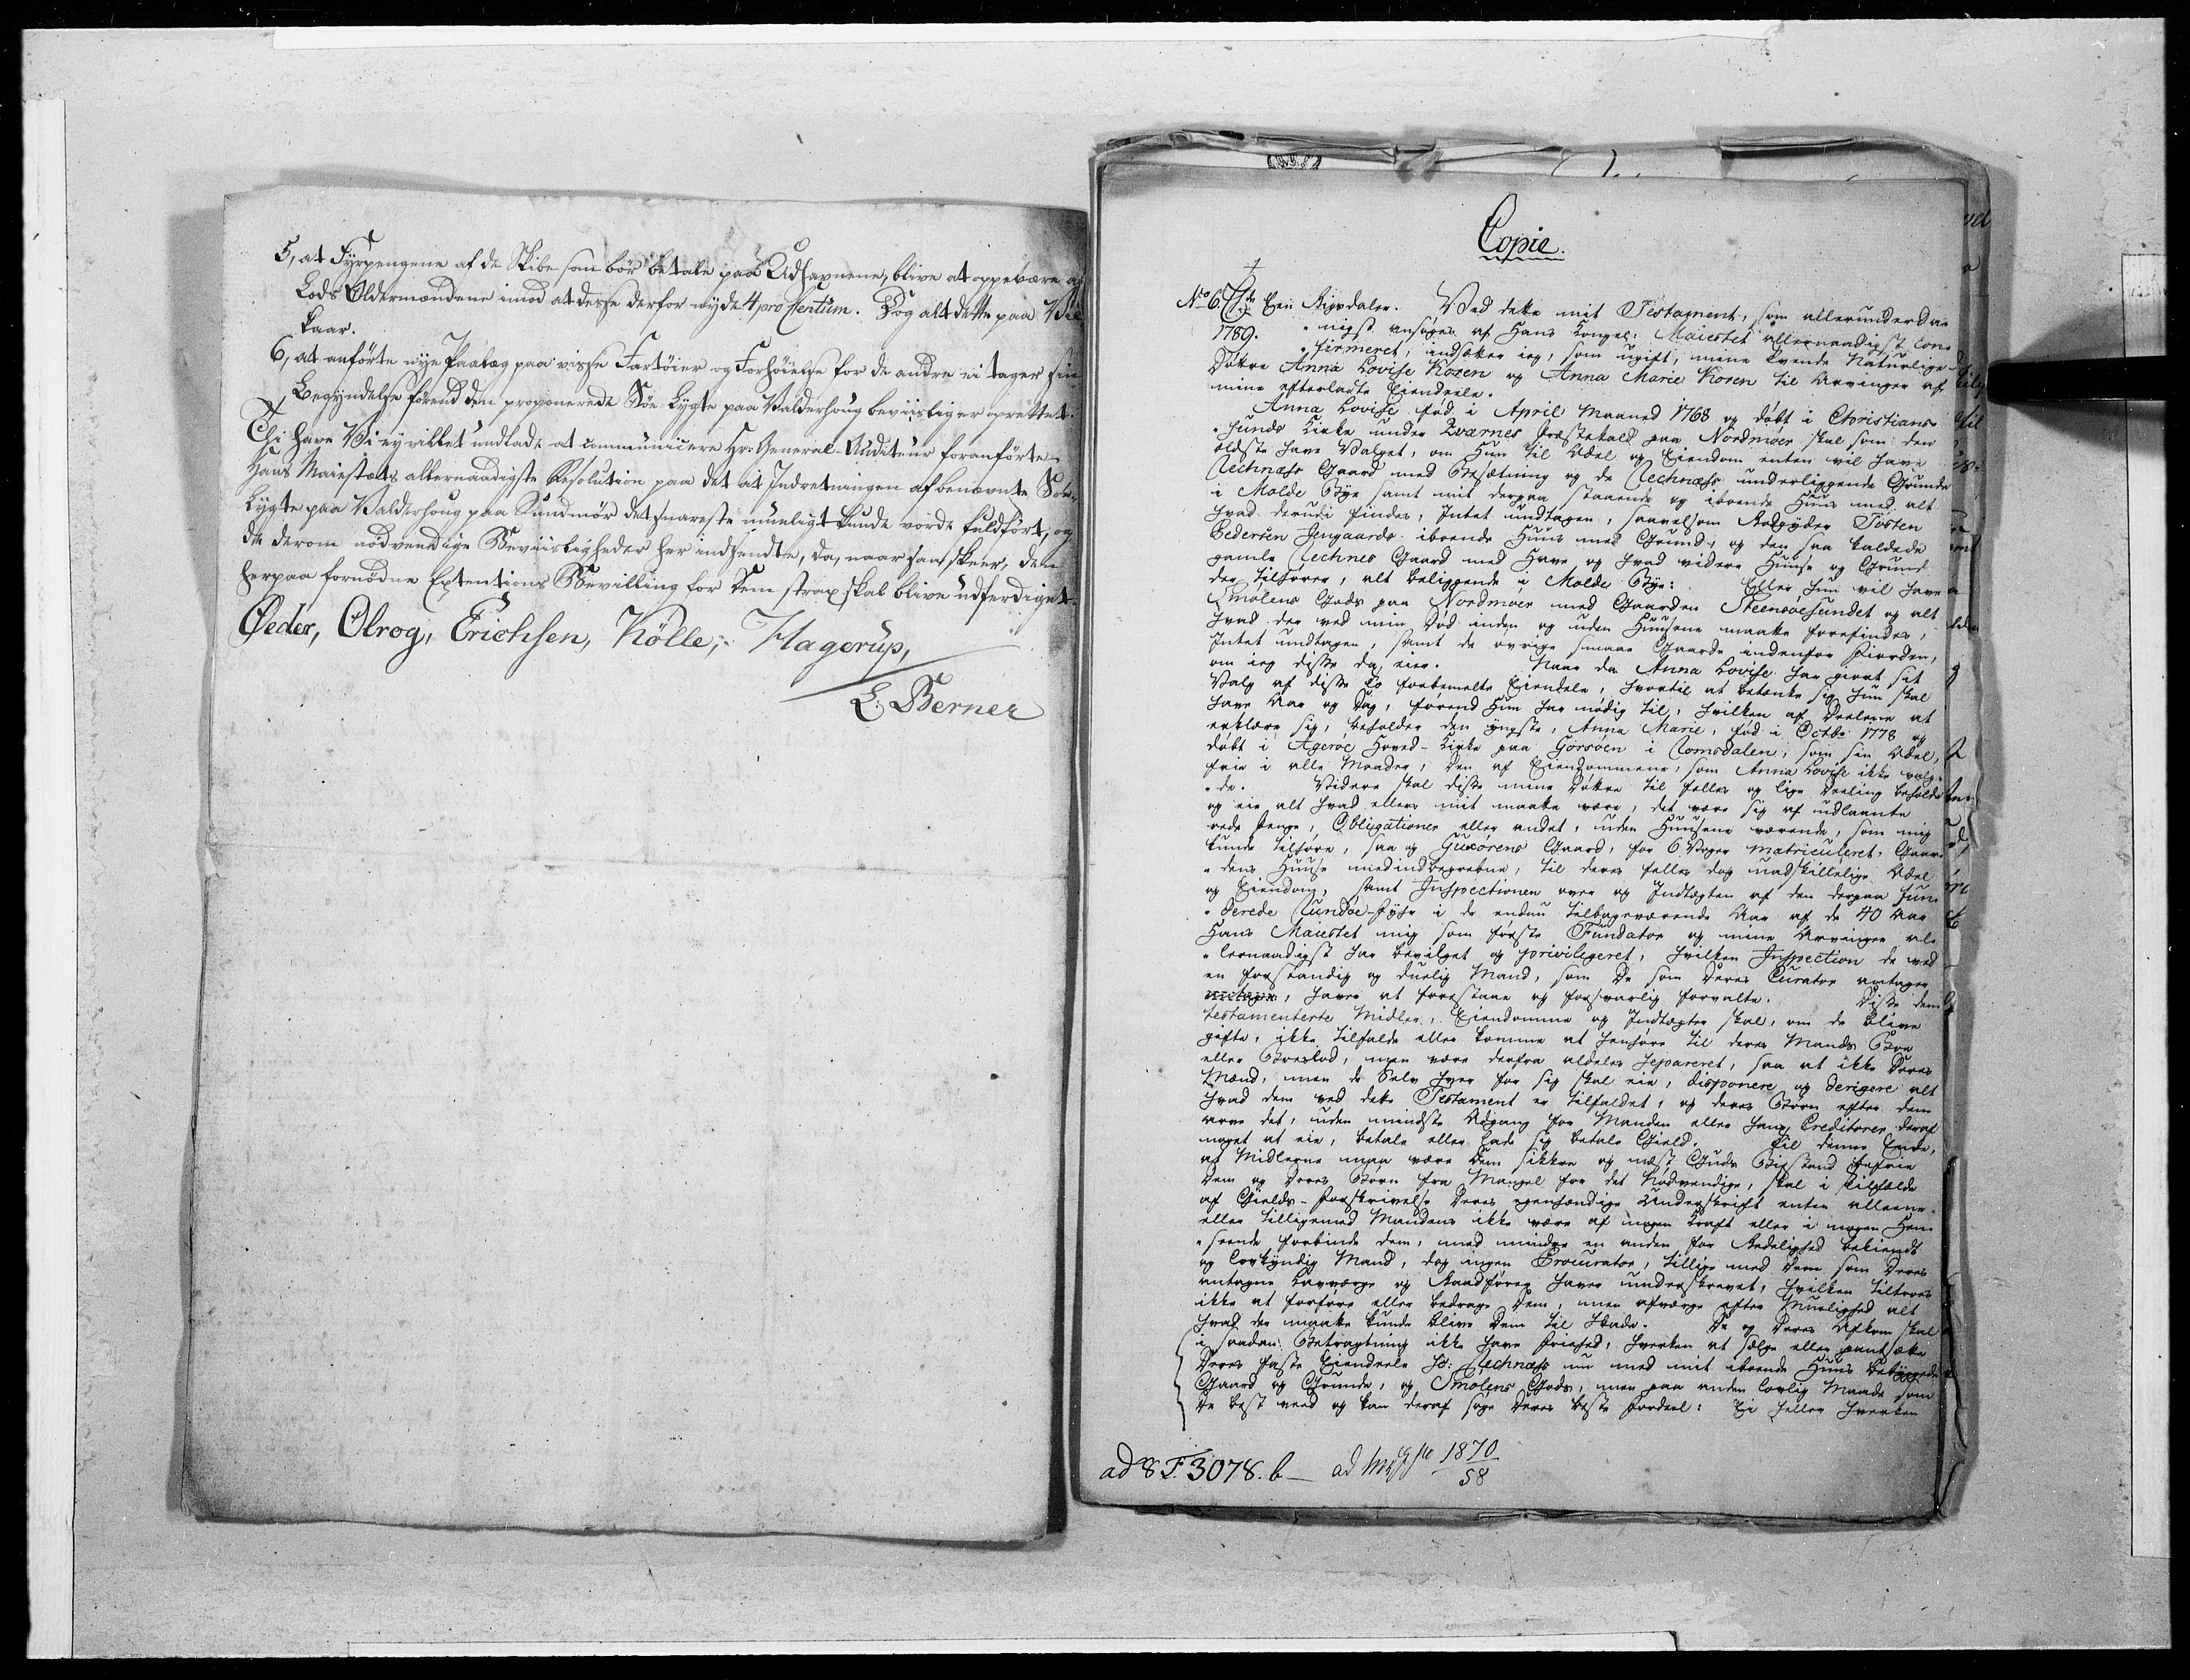 5, at Fyrpengene af de Skibe som bør betale paa Udhavnene, blive at oppebære af
Lods Oldermændene imod at desse derfor nyde 4 pro Centum. Dog alt dette paa Vil-
kaar.
6, at anførte nye Paalæg paa visse Fartøier og Forhøielse for de andre ei tager sin
Begyndelse førend den proponerede Søe-Lygte paa Valderhoug beviislig er oprettet.
Thi have Vi ey villet undlade at communicere Hr: General-Auditeur foranførte
Hans Maiestæts allernaadigste Resolution paa det at Indretningen af benævnte Søe-
Lygte paa Valderhoug paa Sundmør det snareste mueligt kunde vorde fuldført, og
de derom nødvendige Beviisligheder her indsendte, da, naar saa skeer, den
herpaa fornødne Extentions Bevilling for Dem strax skal blive udferdiget.
Oeder, Olrog, Erichsen, Kølle, Hagerup,
L. Berner
Copie.
No 6 Een Rixdaler. Ved dette mit Testament, som allerunderdan
1789. nigst ansøges af Hans Kongel: Maiestet allernaadigst con-
firmeret, indsætter ieg, som ugift, mine tvende Naturlige
Døttre Anna Lovise Koren og Anna Marie Koren til Arvinger af
mine efterladte Eiendeele.
Anna Lovise fød i April Maaned 1768 og døbt i Christians-
sunds Kirke under Qværnes Præstekald paa Nordmøer skal som den
ældste have Valget, om Hun til Odel og Eiendom enten vil have
Rechnæss Gaard med Besætning og de Rechnæss underliggende Grunde
i Molde Bye samt mit derpaa staaende og iboende Huus med alt
hvad derudi findes, Intet undtagen, saavelsom Torsten
Pedersen Jengaards iboende Huus med Grund, og den saa kaldede
gamle Rechnes Gaard med Have og hvad videre Huuse og Grund
der tilhører, alt beliggende i Molde Bye: Eller hun vil have
Smølens Gods paa Nordmøer med Gaarden Steensøesundet og alt
hvad der ved min Død inden og uden Huusene maatte forefindes,
Intet undtagen, samt de øvrige smaae Gaarde indenfor Fiorden,
om ieg disse da eier. Naar da Anna Lovise har giort sit
Valg af disse to forbemelte Eiendele, hvortil at betænke sig hun skal
have Aar og Dag, førend Hun har nødig til, hvilken af Deelene at
erklære sig, beholder den yngste, Anna Marie, fød i Octbr 1778 og
døbt i Agerøe Hoved-Kirke paa Gorsøen i Romsdalen, som sin Odel,
frie i alle Maader, den af Eiendommene, som Anna Lovise ikke valg-
de. Videre skal disse mine Døttre til felles og lige Deeling beholde
og eie alt hvad ellers mit maatte være, det være sig af udlaante
rede Penge, Obligationer eller andet, uden Huusene værende, som mig
kunde tilhøre, saa og Guxørens Gaard, for 6 Voger matriculeret, Gaar-
dens Huuse medindbegrebne, til deres felles dog uadskillelige Odel
og Eiendom, samt Inspectionen over og Indtægten af den derpaa fun-
derede Rundøe-Fyhr i de endnu tilbageværende Aar af de 40 Aar
Hans Maiestet mig som første Fundator og mine Arvinger al-
lernaadigst har bevilget og privilegeret, hvilken Inspection de ved
en forstandig og duelig Mand, som De som Deres Curator antager
haver at forestaae og forsvarlig forvalte. Disse dem
testamenterte Midler, Eiendomme og Indtægter skal, om de blive
gifte, ikke tilfalde eller komme at henhøre til deres Mands Boe
eller Boeslod, men være derfra aldeles separeret, saa at ikke Deres
Mænd, men de Selv hver for sig skal eie, disponere og derigere alt
hvad dem ved dette Testament er tilfaldet, og deres Børn efter dem
arve det, uden mindste Adgang for Manden eller hans Creditorer deraf
noget at eie, betale eller lade sig betale Gield. Til denne Ende,
at Midlerne maa være Dem sikkre og næst Guds Biestand befrie
Dem og Deres Børn fra Mangel for det Nødvendige, skal i Tilfælde
af Gields-Forskrivelse Deres egenhændige Underskrift enten alleene
eller tilligemed Mandens ikke være af nogen Kraft eller i nogen Hen-
seende forbinde dem, med mindre en anden for Redelighed bekiendt
og Lovkyndig Mand, dog ingen Procurator, tillige med Dem som Deres
antagne Lavværge og Raadfører haver underskrevet, hvilken tiltroes
ikke at forføre eller bedrage Dem, men afværge efter Muelighed alt
hvad der maatte kunde blive Dem til Skade. De og Deres Afkom skal
i saadan Betragtning ikke have Friehed, hverken at sælge eller pantsætte
Deres faste Eiendeele So: Rechnæss nu med mit iboende Huus bebyggede
Gaard og Grunde, og Smølens Gods, men paa anden lovlig Maade som
De best veed og kan deraf søge Deres beste Fordeel: Ei heller hverken
ad 8 F. 3078. b — ad 1870
58